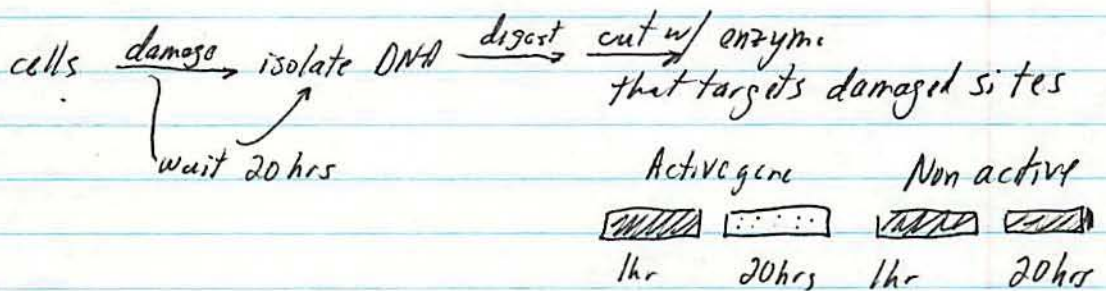 cells damage isolate DNA digest cut w/ enzyme
that targets damaged sites
wait 20 hrs
Active gene Non active
1hr 20hrs 1hr 20hrs